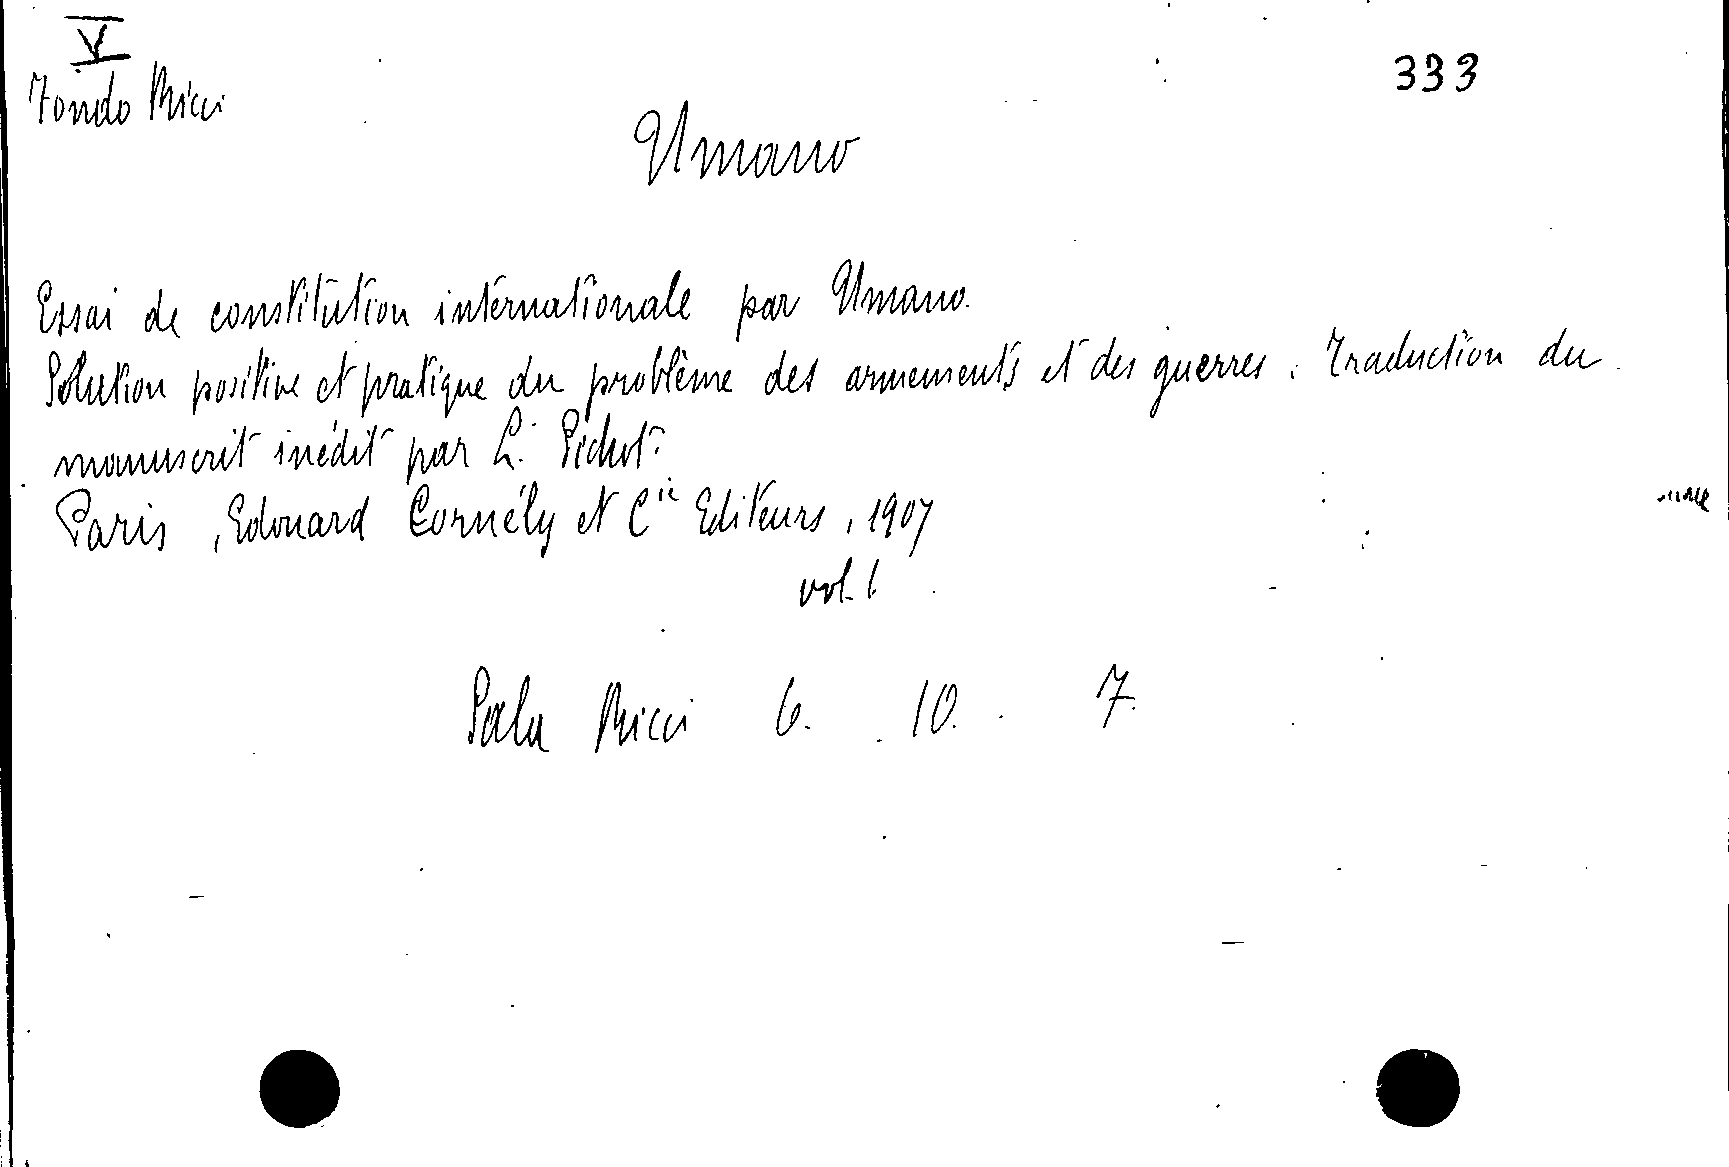 V
Fondo Ricci
333
Umano
Essai de constitution internationale par Umano.
Solution positive et pratique du problème des armements et des guerres. Traduction du
manuscrit inédit par L. Pichot.
Paris, Edouard Cornély et Cie Editeurs, 1907
vol. 1
Sala Ricci 6. 10. 7.